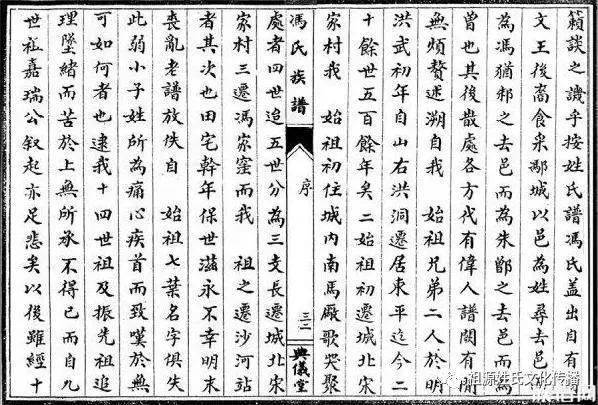 籟談之譏乎按姓氏譜馮氏蓋出自有周
文王後裔食采鄢城以邑為姓尋去邑而
為馮猶邾之去邑而為朱鄫之去邑而為
曾也其後散處各方代有偉人譜闕有間
無煩贅述溯自我 始祖兄弟二人於明
洪武初年自山右洪洞遷居東平迄今二
十餘世五百餘年矣二始祖初遷城北宋
家村我 始祖初住城內南馬廠歌哭聚
馮氏族譜 序 三二 典儀堂
處者四世迨五世分為三支長遷城北宋
家村三遷馮家窪而我 祖之遷沙河站
者其次也田宅幹年保世滋永不幸明末
喪亂老譜放佚自 始祖七葉名字俱失
此弱小子姓所為痛心疾首而致嘆於無
可如何者也逮我十四世祖及振先祖追
理墜緒而苦於上無所承不得已而自九
世祖嘉瑞公叙起亦足悲矣以後雖經十
祖源姓氏文化传播